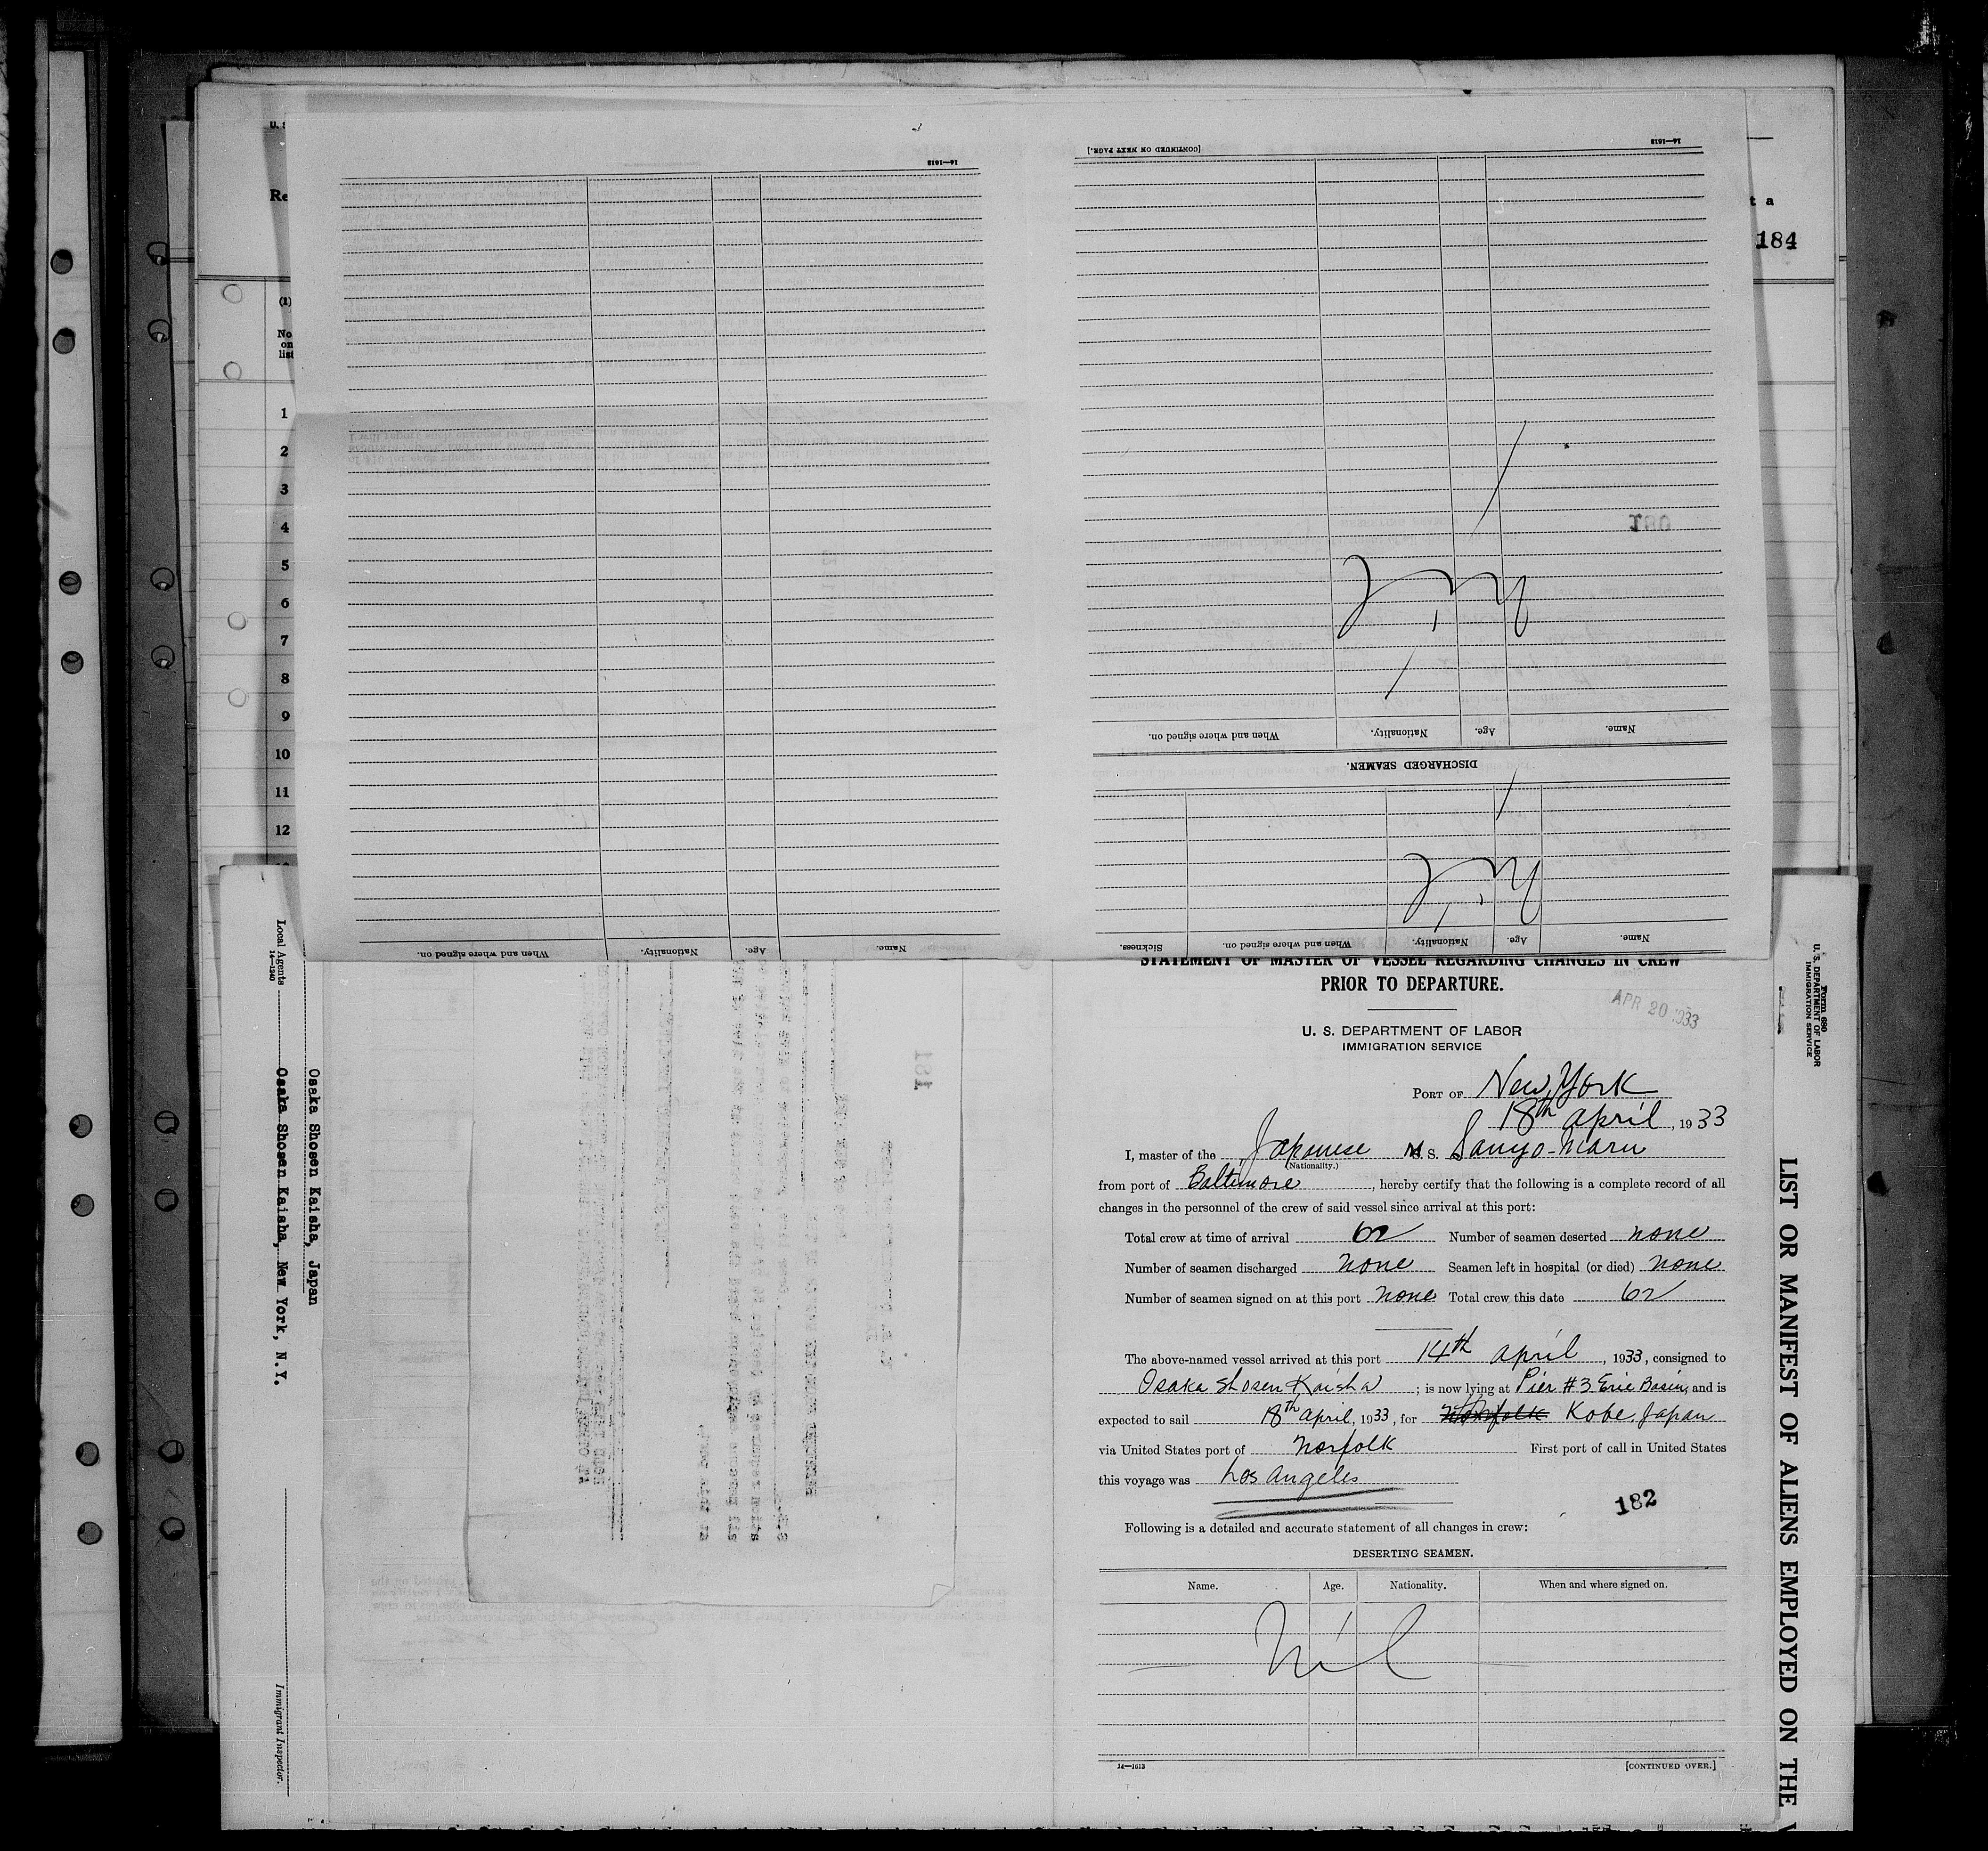 U. S
Re
(1)
No
on
list
1
2
3
4
5
6
7
8
9
10
11
12
t a
184
14—1613
When and where signed on.
Nationality.
Age.
Name.
[CONTINUED ON NEXT PAGE.]
14—1613
Nil
Name.
Age.
Nationality.
When and where signed on.
DISCHARGED SEAMEN.
Nil
Name.
Age.
Nationality.
When and where signed on.
Sickness.
181
STATEMENT OF MASTER OF VESSEL REGARDING CHANGES IN CREW
PRIOR TO DEPARTURE.
APR 20 1933
U. S. DEPARTMENT OF LABOR
IMMIGRATION SERVICE
PORT OF New York
18th April, 1933
I, master of the Japanese M. S. Sanyo-Maru
(Nationality.)
from port of Baltimore, hereby certify that the following is a complete record of all
changes in the personnel of the crew of said vessel since arrival at this port:
Total crew at time of arrival 62 Number of seamen deserted none
Number of seamen discharged none Seamen left in hospital (or died) none
Number of seamen signed on at this port none Total crew this date 62
The above-named vessel arrived at this port 14th April, 1933, consigned to
Osaka Shosen Kaisha; is now lying at Pier #3 Erie Basin, and is
expected to sail 18th April, 1933, for Norfolk Kobe, Japan
via United States port of Norfolk First port of call in United States
this voyage was Los Angeles
182
Following is a detailed and accurate statement of all changes in crew:
DESERTING SEAMEN.
Name. Age. Nationality. When and where signed on.
Nil
14—1613 [CONTINUED OVER.]
Osaka Shosen Kaisha, Japan
Local Agents Osaka Shosen Kaisha, New York, N.Y.
14—1240
Immigrant Inspector.
Form 680
U. S. DEPARTMENT OF LABOR
IMMIGRATION SERVICE
LIST OR MANIFEST OF ALIENS EMPLOYED ON THE V